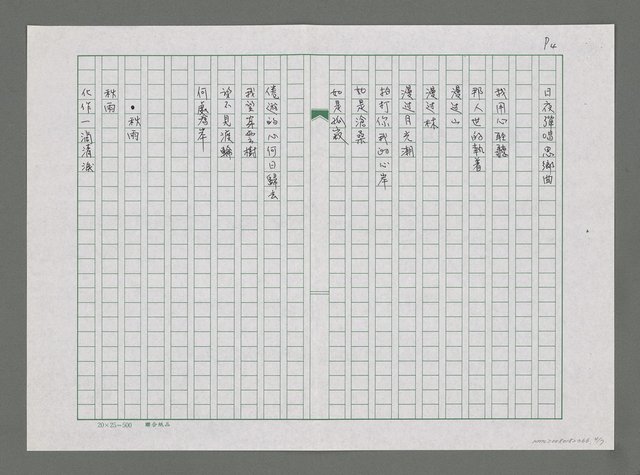 P4
日夜彈唱思鄉曲
我用心聆聽
那人世的執着
漫过山
漫过林
漫过月光潮
拍打你我的心岸
如是滄桑
如是孤寂
倦遊的心何日歸去
我望盡雲樹
望不見渡輪
何處是岸
•秋雨
秋雨
化作一滴清淚
20×25=500 聯合紙品